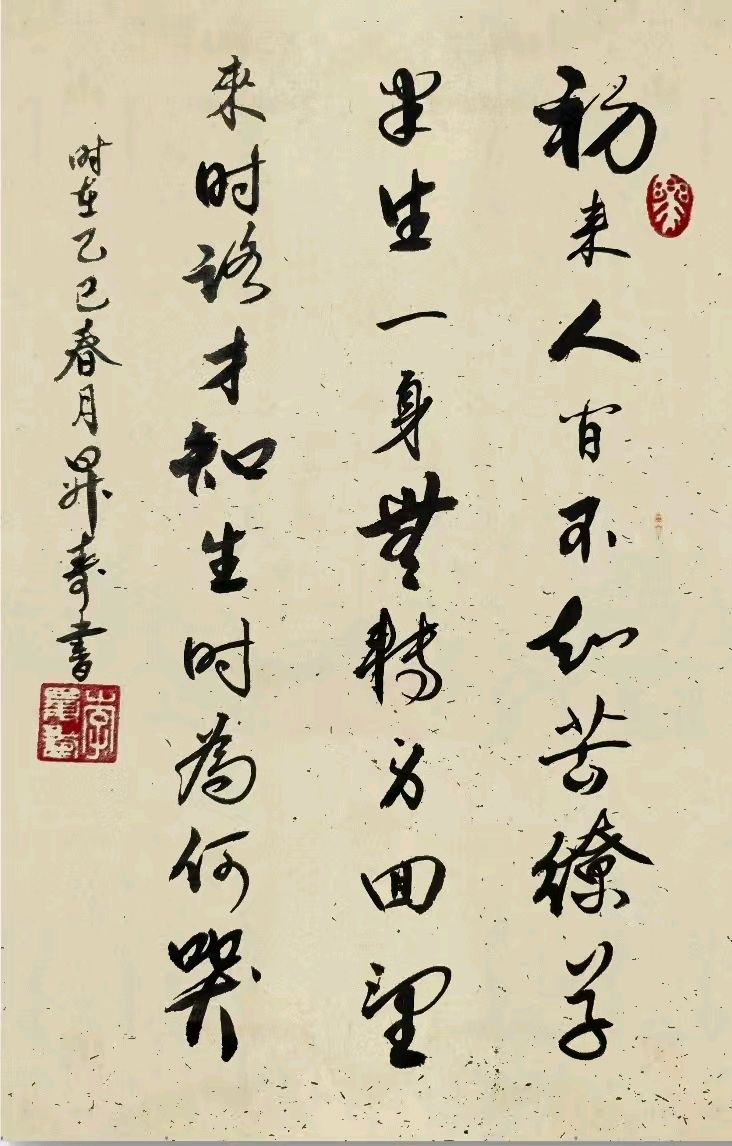 初来人间不知苦繚草
半生一身無轉身回望
来时路才知生时為何哭
时在乙巳春月昇寿書